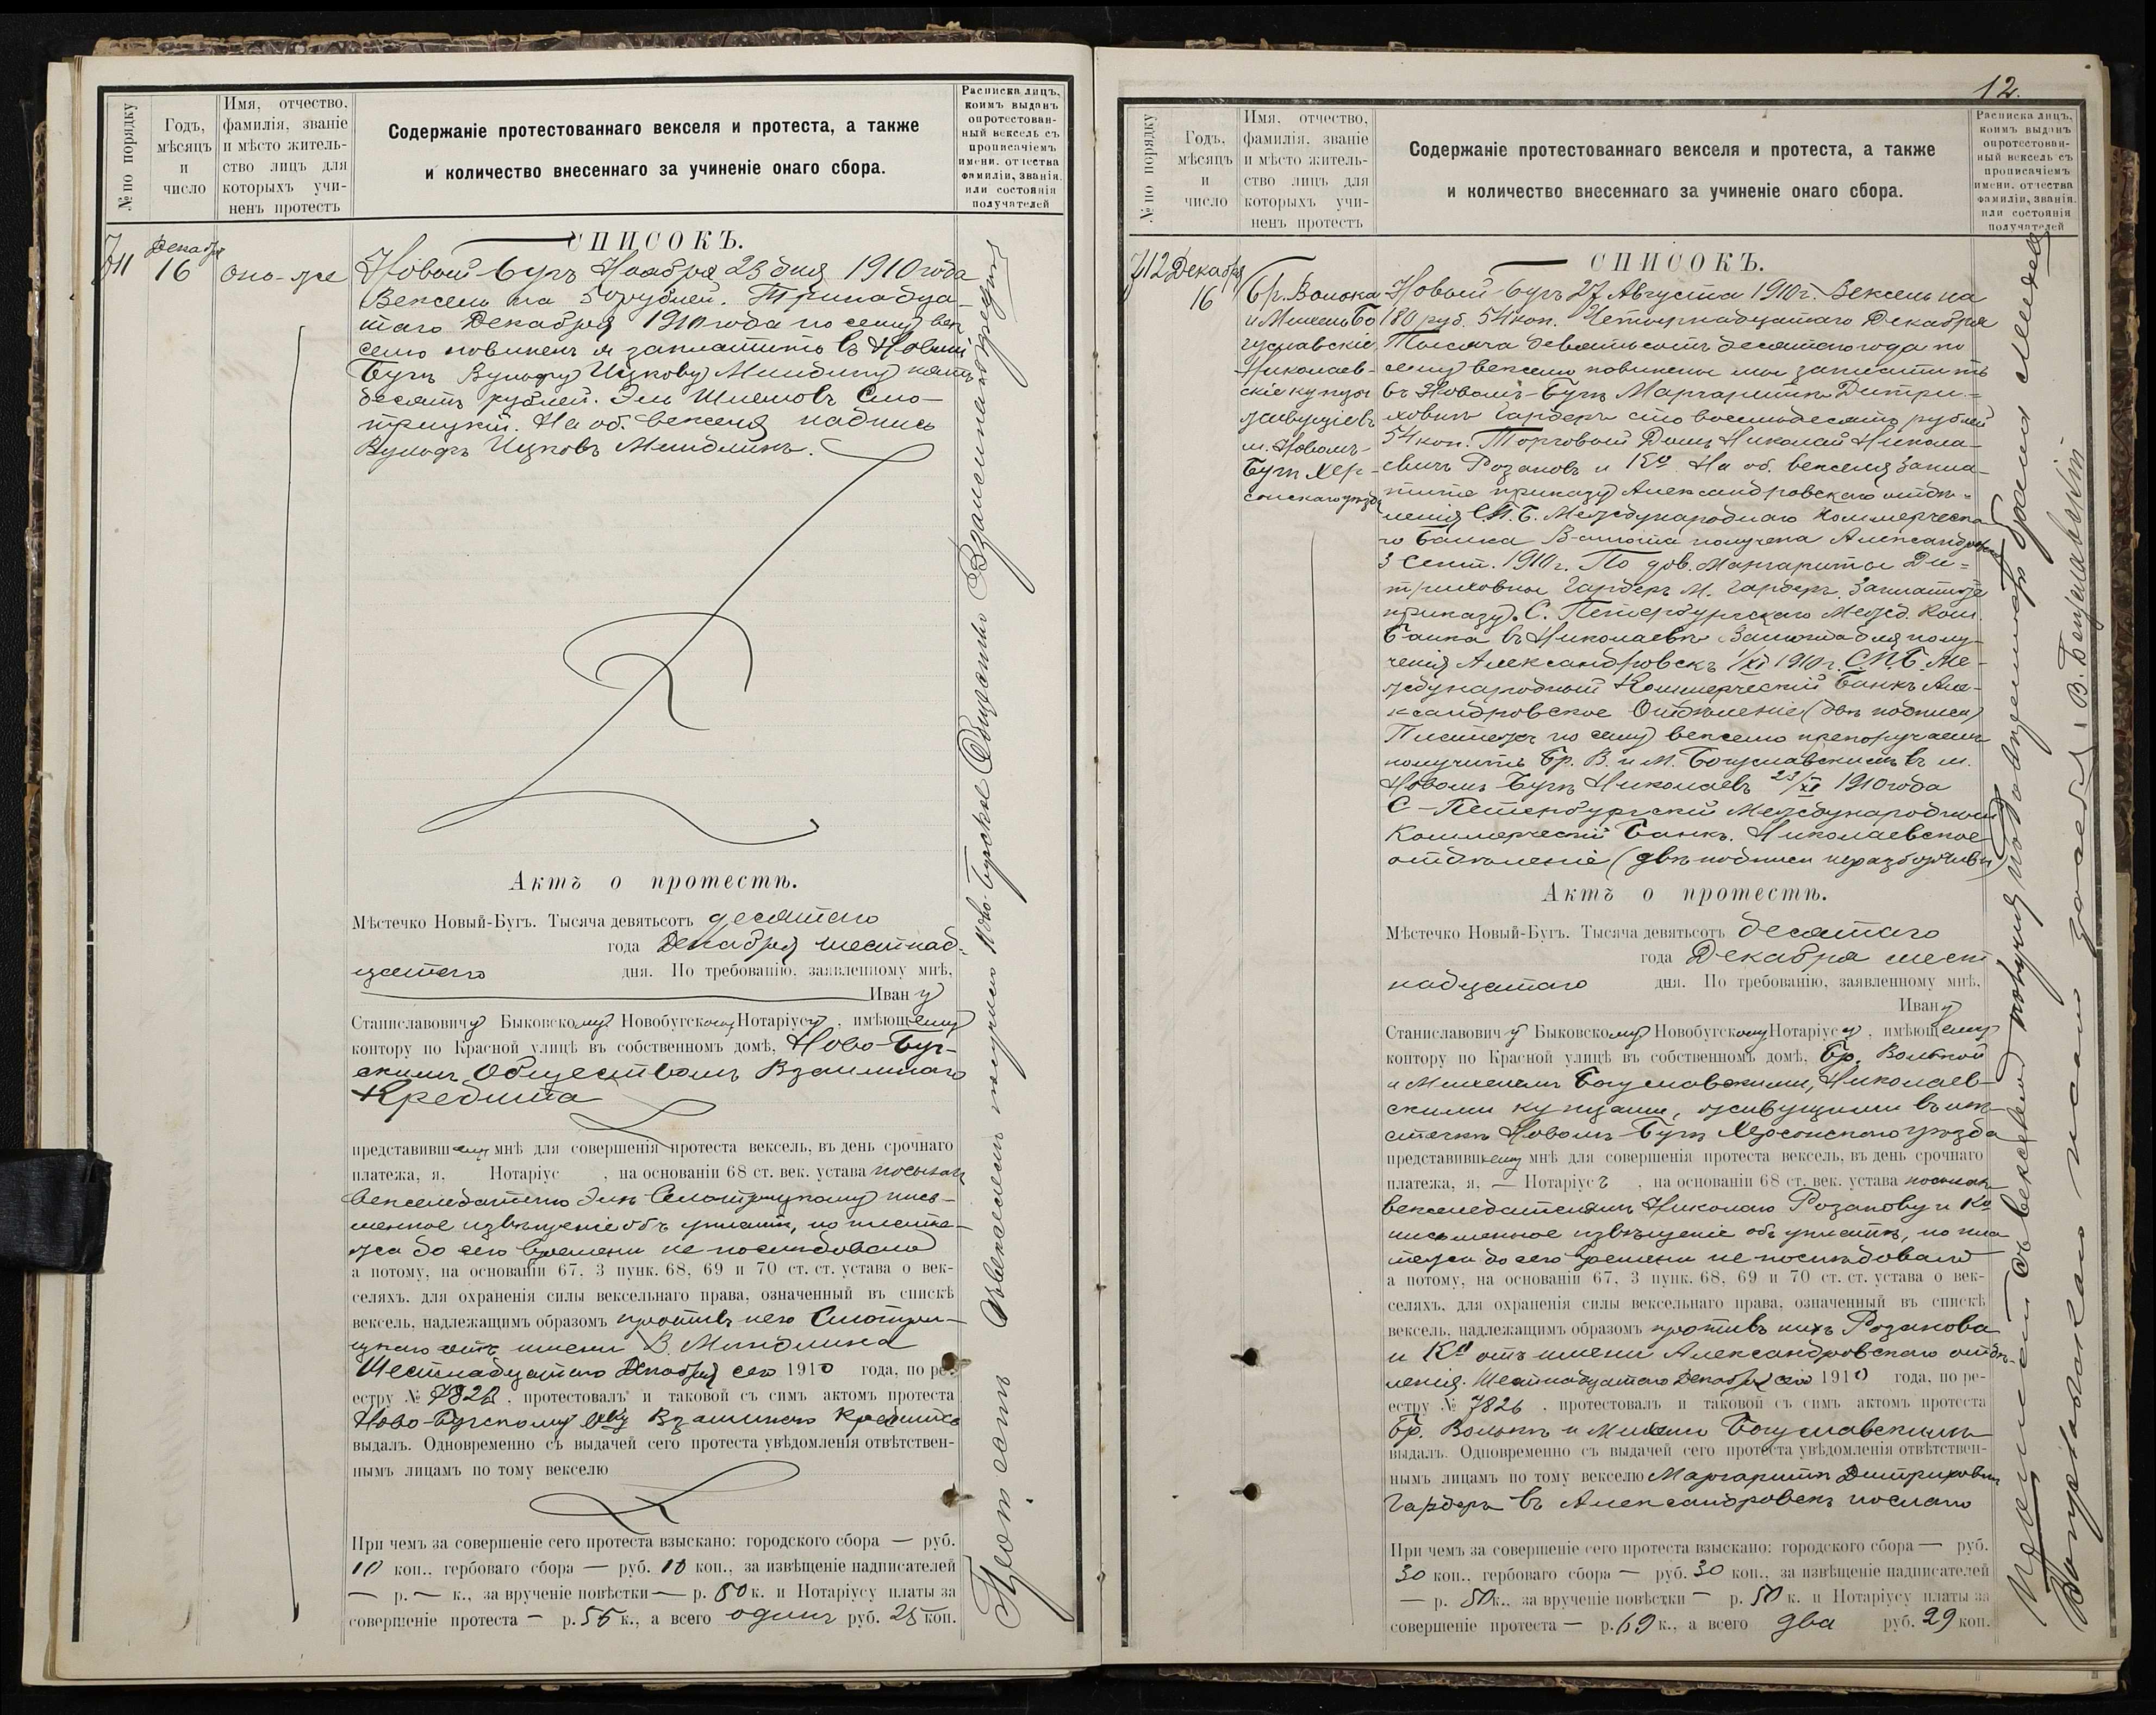 № по порядку
Годъ,
мѣсяцъ
и
число
Имя, отчество,
фамилія, званіе
и мѣсто житель-
ство лицъ для
которыхъ учи-
ненъ протестъ
Содержаніе протестованнаго векселя и протеста, а также
и количество внесеннаго за учиненіе онаго сбора.
Расписка лицъ,
коимъ выданъ
опротестован-
ный вексель съ
прописаніемъ
имени, отчества
фамиліи, званія,
или состоянія
получателей
711
Декабря
16
Оно-же
СПИСОКЪ.
Новый Бугъ Ноября 23 дня 1910 года
Вексель на 50 рублей. Тринадца-
таго Декабря 1910 года по сему век
селю повиненъ я заплатить въ Новый
Бугъ Вульфу Ицкову Миндлину пять
десятъ рублей. Эль Шлемовъ Смо-
трицкій. На об. векселя надпись
Вульфъ Ицковъ Миндлинъ.
Актъ о протестѣ.
Мѣстечко Новый-Бугъ. Тысяча девятьсотъ десятаго
года Декабря шестнад-
цатаго дня. По требованію, заявленному мнѣ,
Ивану
Станиславовичу Быковскому Новобугскому Нотаріусу, имѣющему
контору по Красной улицѣ въ собственномъ домѣ, Ново-Буг-
скимъ Обществомъ Взаимнаго
Кредита
представившему мнѣ для совершенія протеста вексель, въ день срочнаго
платежа, я, Нотаріус , на основаніи 68 ст. век. устава посылалъ
векселедателю Элю Смотрицкому пись-
менное извѣщеніе объ уплатѣ, но плате-
жа до сего времени не послѣдовало
а потому, на основаніи 67, 3 пунк. 68, 69 и 70 ст. ст. устава о век-
селяхъ, для охраненія силы вексельнаго права, означенный въ спискѣ
вексель, надлежащимъ образомъ противъ него Смотри-
цкаго отъ имени В. Миндлина
Шестнадцатаго Декабря сего 1910 года, по ре-
естру № , протестовалъ и таковой съ симъ актомъ протеста
Ново-Бугскому Об-ву Взаимнаго Кредита
выдалъ. Одновременно съ выдачей сего протеста увѣдомленія отвѣтствен-
нымъ лицамъ по тому векселю
При чемъ за совершеніе сего протеста взыскано: городского сбора — руб.
10 коп., гербоваго сбора — руб. 10 коп., за извѣщеніе надписателей
— р. — к., за врученіе повѣстки — р. 50 к. и Нотаріусу платы за
совершеніе протеста — р. 55 к., а всего одинъ руб. 25 коп.
Протестъ съ векселемъ получило Ново-Бугское Общество Взаимнаго Кредита
12.
№ по порядку
Годъ,
мѣсяцъ
и
число
Имя, отчество,
фамилія, званіе
и мѣсто житель-
ство лицъ для
которыхъ учи-
ненъ протестъ
Содержаніе протестованнаго векселя и протеста, а также
и количество внесеннаго за учиненіе онаго сбора.
Расписка лицъ,
коимъ выданъ
опротестован-
ный вексель съ
прописаніемъ
имени, отчества
фамиліи, званія,
или состоянія
получателей
712
Декабря
16
Бр. Волька
и Михель Бо
гуславскіе,
Николаев-
скіе купцы
живущіе въ
м. Новомъ-
Бугѣ Хер-
сонскаго уѣзда
СПИСОКЪ.
Новый Бугъ 27 Августа 1910 г. Вексель на
180 руб. 54 коп. Четырнадцатаго Декабря
Тысяча девятьсотъ десятаго года по
сему векселю повинны мы заплатить
въ Новомъ-Бугѣ Маргаритѣ Дитри-
ховнѣ Гардеръ сто восемьдесятъ рублей
54 коп. Торговый Домъ Николай Никола-
евичъ Розановъ и Ко. На об. векселя Запла-
тите приказу Александровскаго отдѣ-
ленія С.П.Б. Международнаго Коммерческа
го Банка Валюта получена Александровскъ
3 Сент. 1910 г. По дов. Маргариты Ди-
триховны Гардеръ М. Гардеръ. Заплатите
приказу С. Петербургскаго Межд. Ком.
Банка въ Николаевѣ Валюта для полу-
ченія Александровскъ 1/XI 1910 г. С.П.Б. Ме-
ждународный Коммерческій Банкъ Але-
ксандровское Отдѣленіе (двѣ подписи)
Платежъ по сему векселю препоручаемъ
получить Бр. В. и М. Богуславскимъ въ м.
Новомъ-Бугѣ Николаевъ 23/XI 1910 года
С-Петербургскій Международный
Коммерческій Банкъ. Николаевское
отдѣленіе (двѣ подписи неразборчивы)
Актъ о протестѣ.
Мѣстечко Новый-Бугъ. Тысяча девятьсотъ десятаго
года Декабря шест
надцатаго дня. По требованію, заявленному мнѣ,
Ивану
Станиславовичу Быковскому Новобугскому Нотаріусу, имѣющему
контору по Красной улицѣ въ собственномъ домѣ, Бр. Волькой
и Михелемъ Богуславскими, Николаев-
скими купцами, живущими въ мѣ-
стечкѣ Новомъ-Бугѣ Херсонскаго уѣзда
представившему мнѣ для совершенія протеста вексель, въ день срочнаго
платежа, я, — Нотаріусъ , на основаніи 68 ст. век. устава посылалъ
векселедателямъ Николаю Розанову и Ко
письменное извѣщеніе объ уплатѣ, но пла
тежа до сего времени не послѣдовало
а потому, на основаніи 67, 3 пунк. 68, 69 и 70 ст. ст. устава о век-
селяхъ, для охраненія силы вексельнаго права, означенный въ спискѣ
вексель, надлежащимъ образомъ противъ нихъ Розанова
и Ко отъ имени Александровскаго отдѣ-
ленія. Шестнадцатаго Декабря сего 1910 года, по ре-
естру № 7826, протестовалъ и таковой съ симъ актомъ протеста
Бр. Волькѣ и Михелю Богуславскимъ
выдалъ. Одновременно съ выдачей сего протеста увѣдомленія отвѣтствен-
нымъ лицамъ по тому векселю Маргаритѣ Дитриховнѣ
Гардеръ въ Александровскъ послано
При чемъ за совершеніе сего протеста взыскано: городского сбора — руб.
30 коп., гербоваго сбора — руб. 30 коп., за извѣщеніе надписателей
— р. 50 к., за врученіе повѣстки — р. 50 к. и Нотаріусу платы за
совершеніе протеста — р. 69 к., а всего два руб. 29 коп.
съ векселемъ получилъ
В. Богуславскій